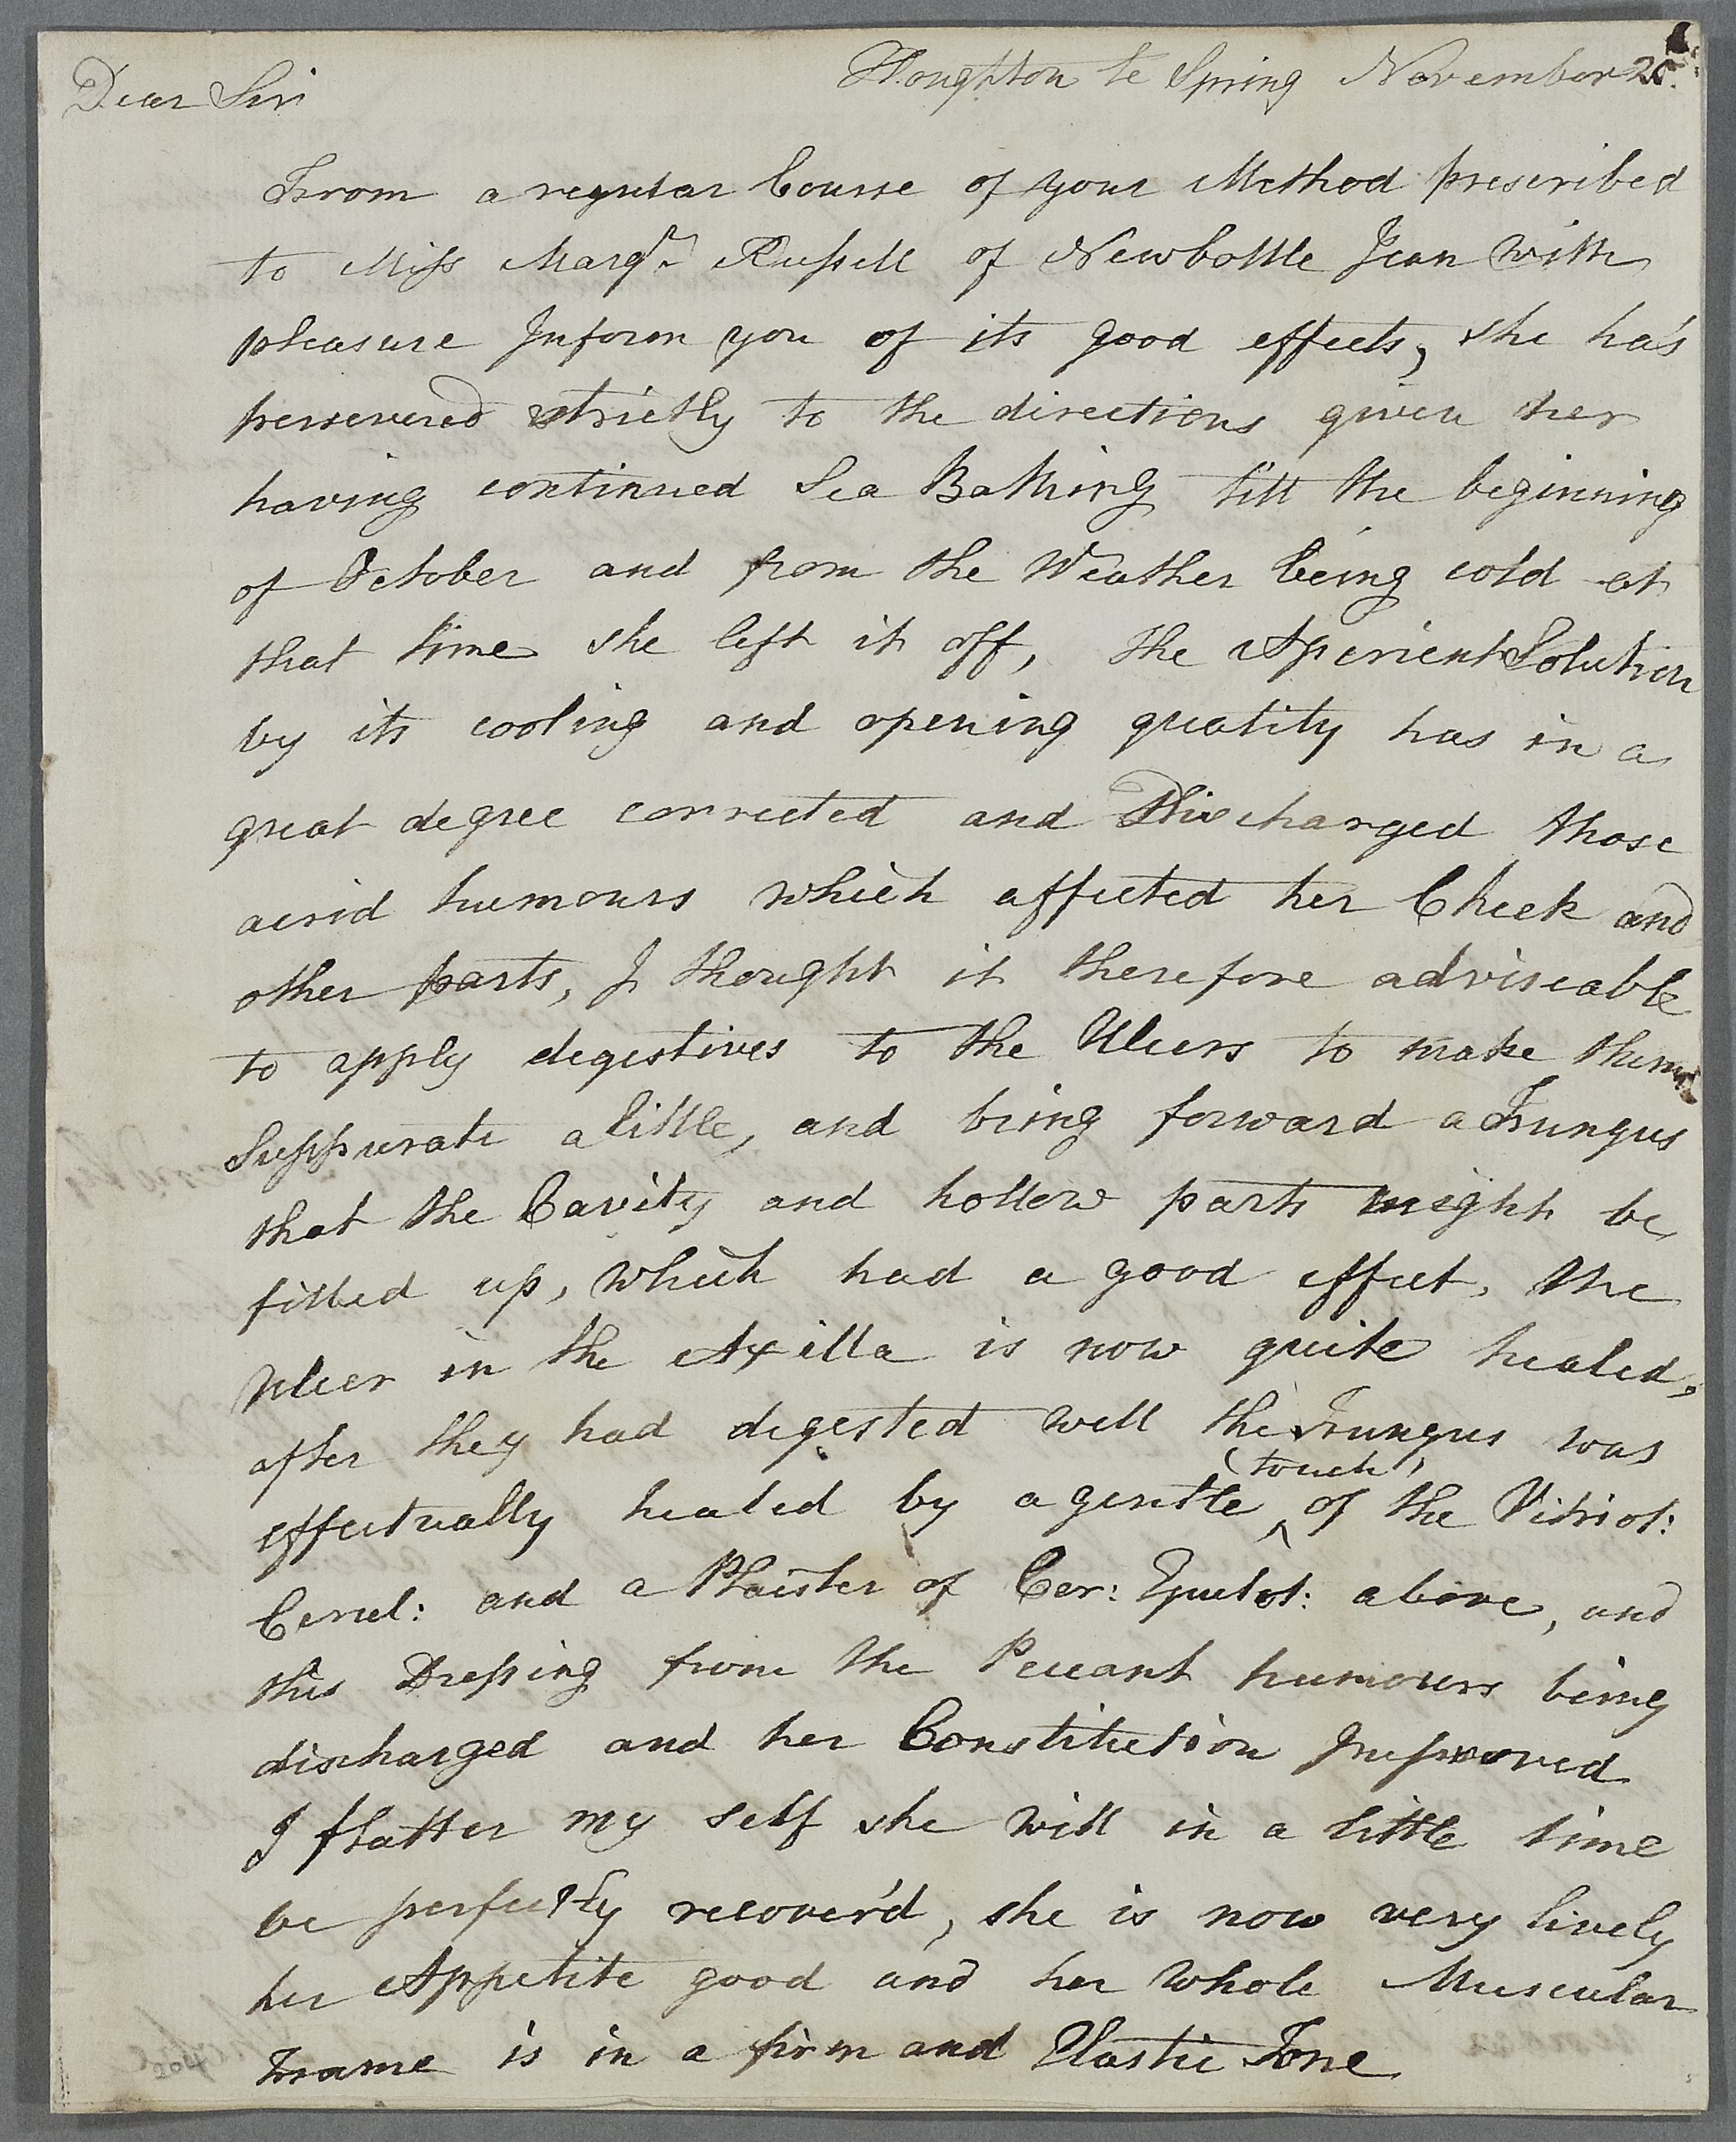 Dear Sir
Houghton le Spring November 25.
From a regular Course of your Method prescribed
to Miss Margt. Russell of Newbottle I can with
pleasure Inform you of its good effects, she has
persevered strictly to the directions given her
having continued Sea Bathing till the beginning
of October and from the Weather being cold at
that time she left it off, the Aperient Solution
by its cooling and opening quality has in a
great degree corrected and Discharged those
acrid humours which affected her Cheek and
other parts, I thought it therefore adviseable
to apply digestives to the Ulcers to make them
Suppurate a little, and bring forward a Fungus
that the Cavity and hollow parts might be
filled up, which had a good effect, the
Ulcer in the Axilla is now quite healed,
after they had digested well the Fungus was
effectually healed by a gentle (touch) of the Vitriol:
Cerul: and a Plaister of Cer: Epulot: above, and
this Dressing from the Peccant humours being
discharged and her Constitution Improved
I flatter my self she will in a little time
be perfectly recover'd, she is now very lively
her Appetite good and her whole Muscular
Frame is in a firm and Elastic Tone